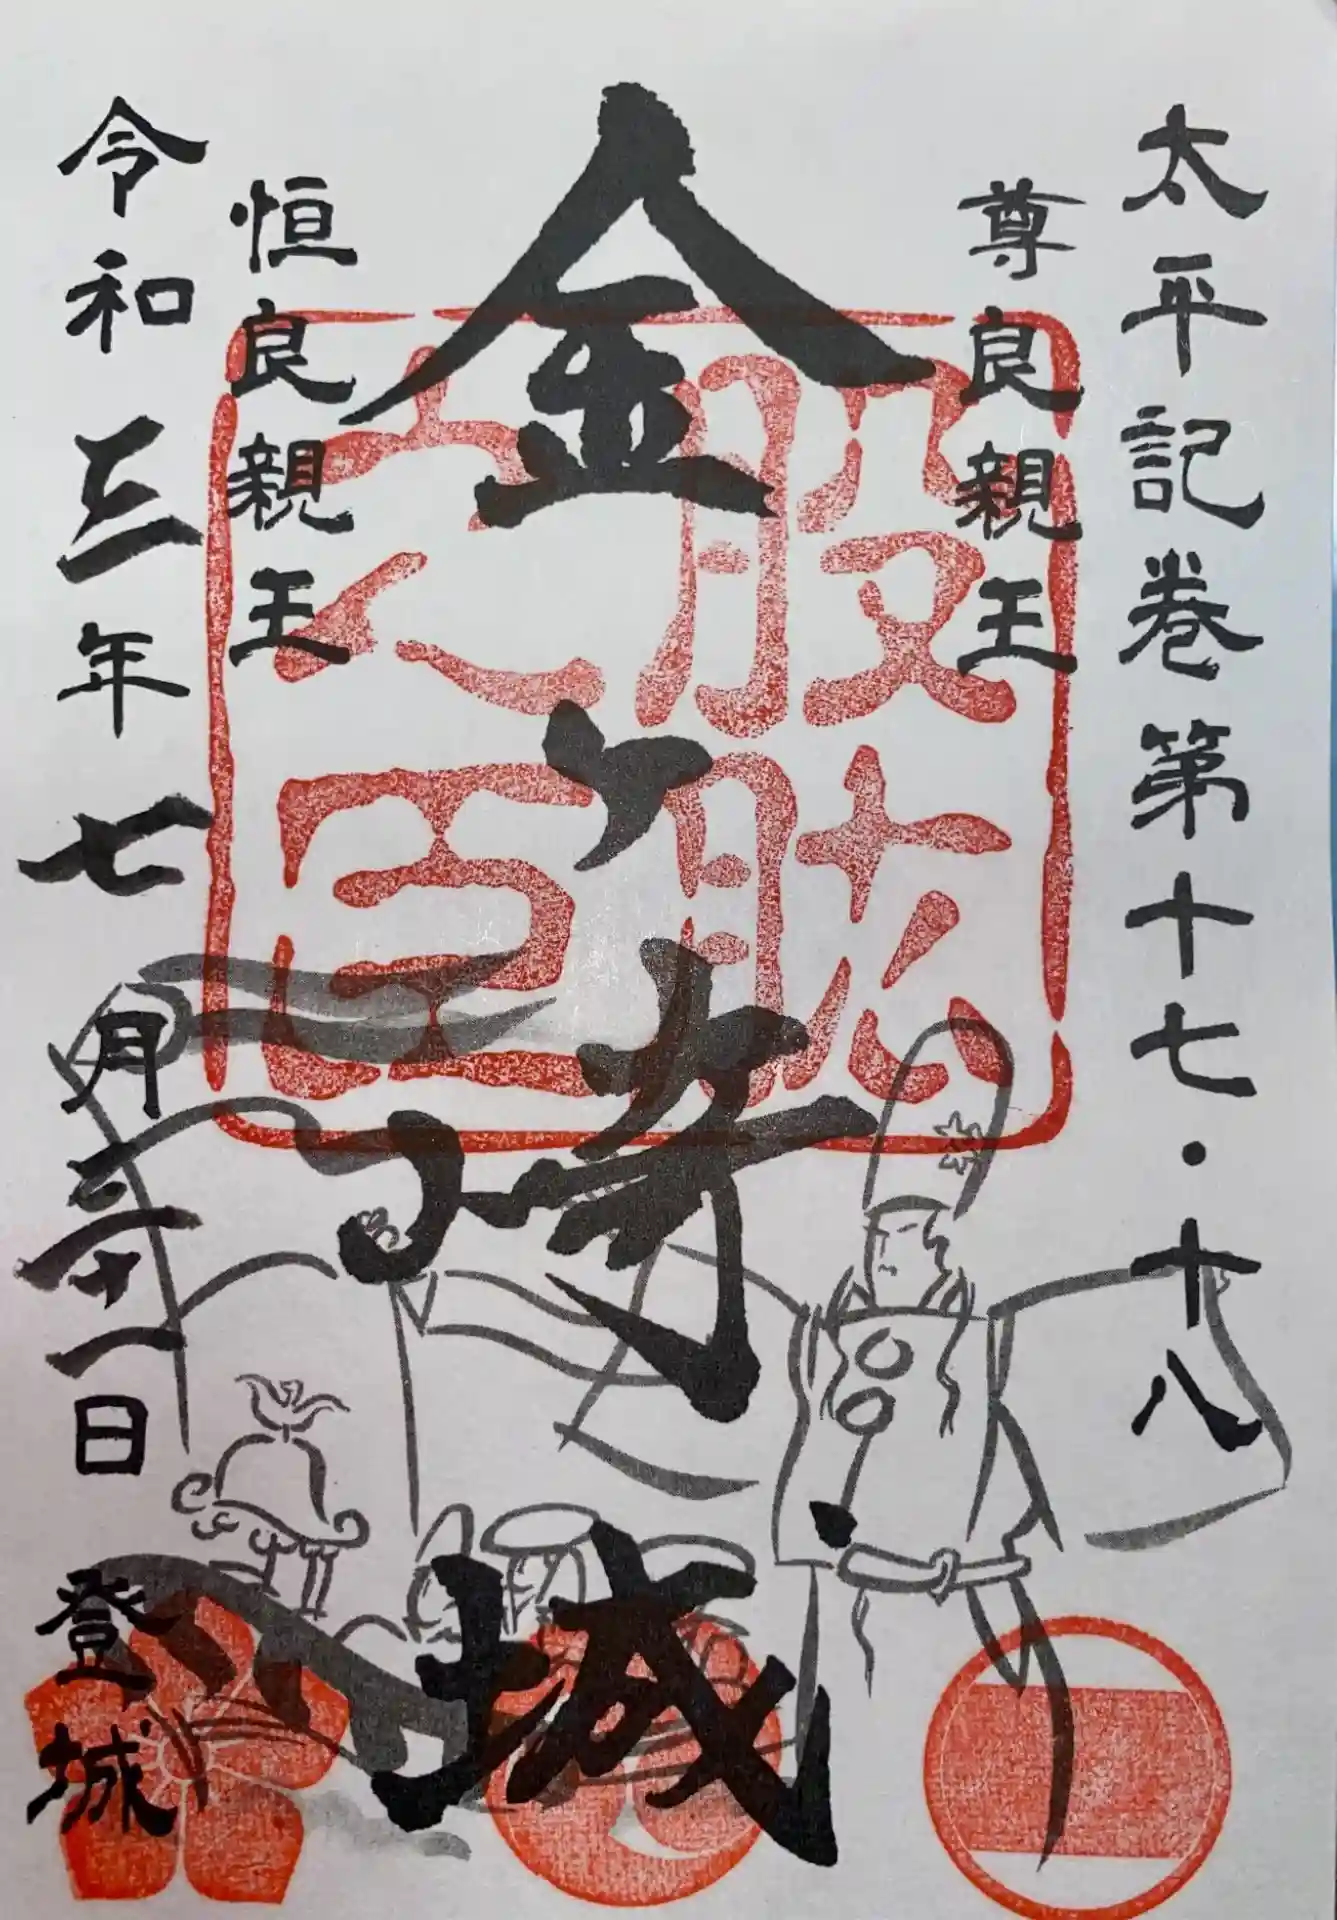 太平記巻第十七・十八
尊良親王
金ヶ崎城
股肱之臣
恒良親王
令和三年七月三十一日登城